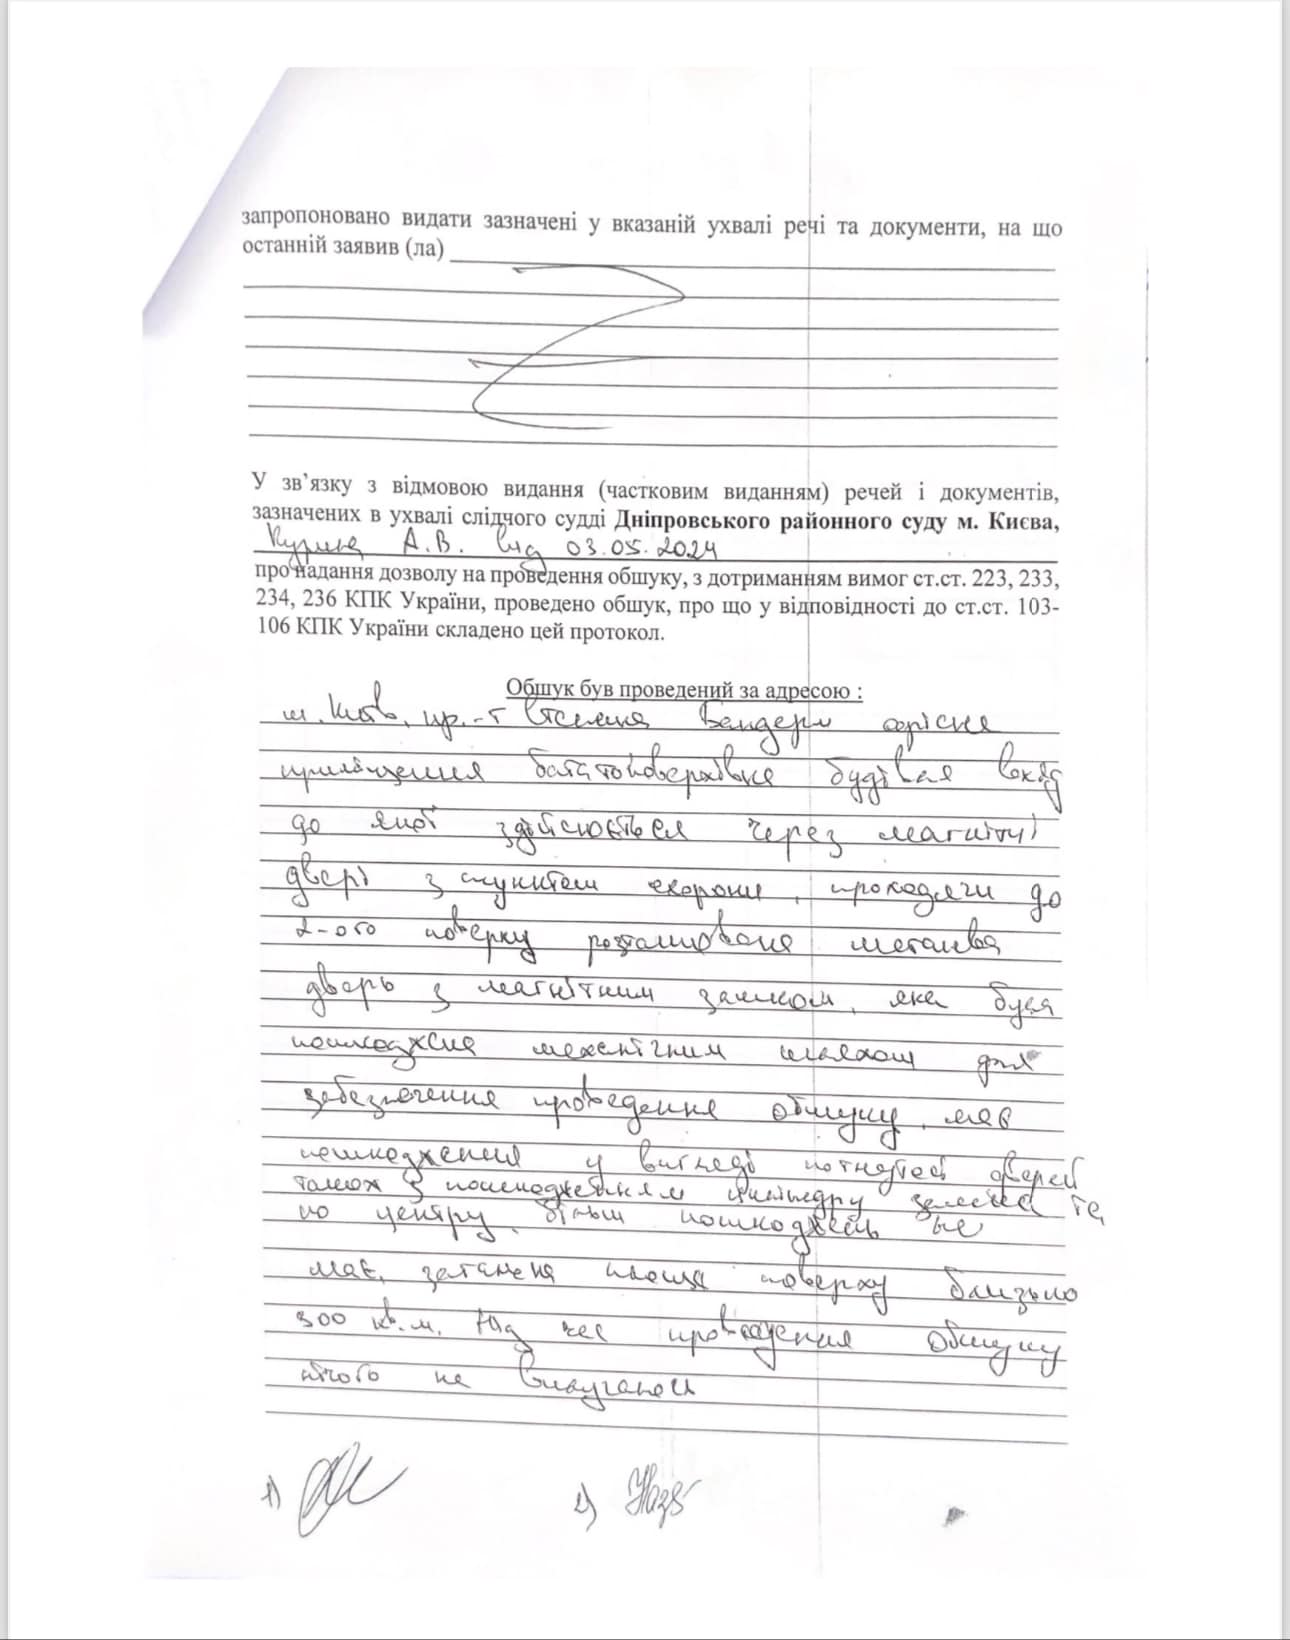 запропоновано видати зазначені у вказаній ухвалі речі та документи, на що
останній заявив (ла)
У зв’язку з відмовою видання (частковим виданням) речей і документів,
зазначених в ухвалі слідчого судді Дніпровського районного суду м. Києва,
А.В. від 03.05.2024
про надання дозволу на проведення обшуку, з дотриманням вимог ст.ст. 223, 233,
234, 236 КПК України, проведено обшук, про що у відповідності до ст.ст. 103-
106 КПК України складено цей протокол.
Обшук був проведений за адресою :
м. Київ, пр.-т Степана Бандери офісне
приміщення багатоповерхівка будівля вхід
до якої здійснюється через магнітні
двері з пунктом охорони, проходячи до
2-ого поверху розташована металева
дверь з магнітним замком, яка була
пошкоджена механічним шляхом для
забезпечення проведення обшуку, має
пошкодження у вигляді погнутої дверей
також з пошкодженням циліндру замка та
по центру, більш пошкоджень не
має, загальна площа поверху близько
300 кв.м. Під час проведення обшуку
нічого не вилучалось
1)
2)